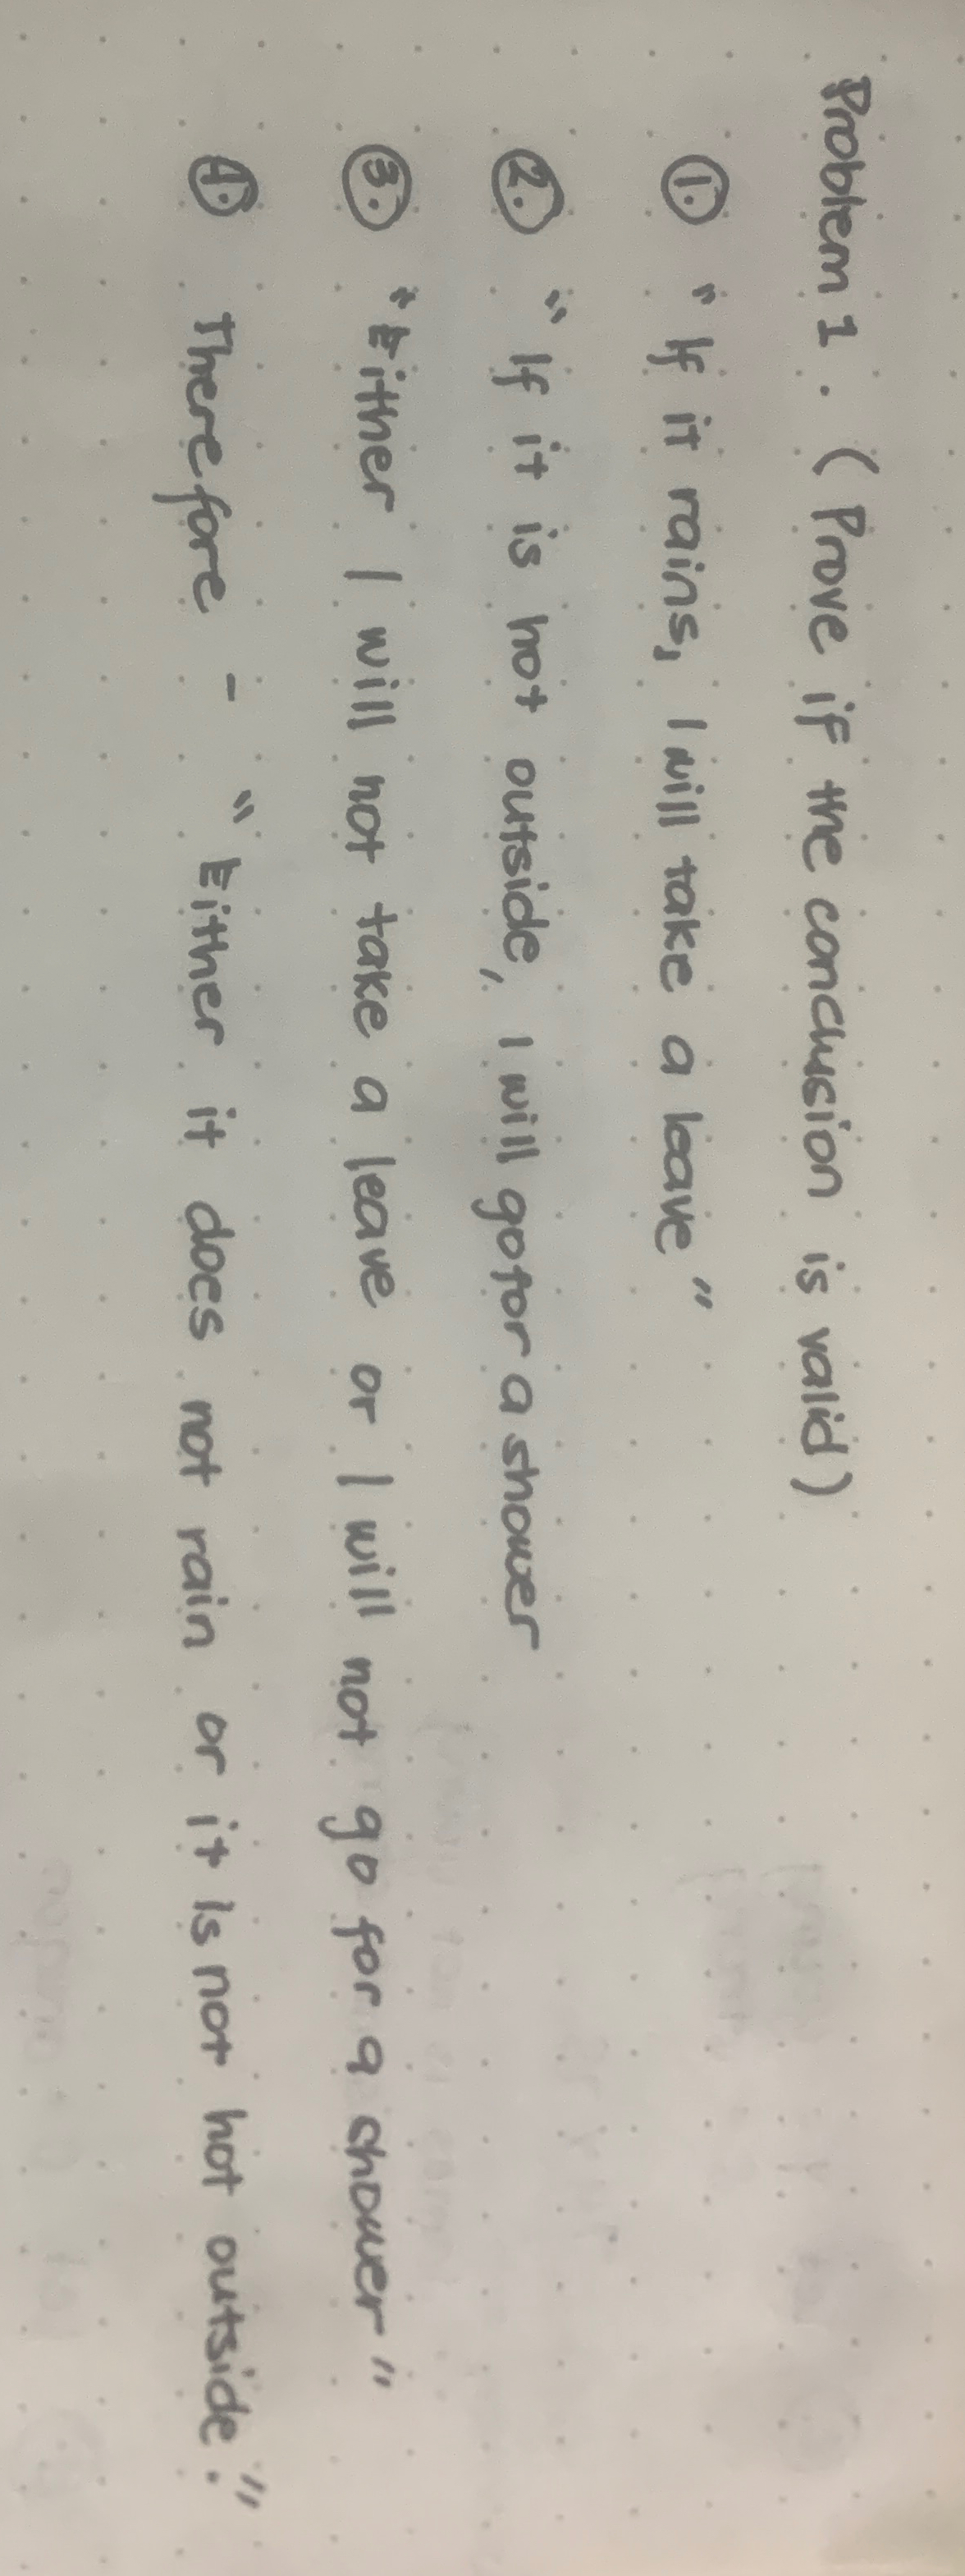 Problem 1. (Prove if the conclusion is valid)
①. "If it rains, I will take a leave"
②. "If it is hot outside, I will go for a shower
③. "Either I will not take a leave or I will not go for a shower"
④. Therefore - "Either it does not rain or it is not hot outside."